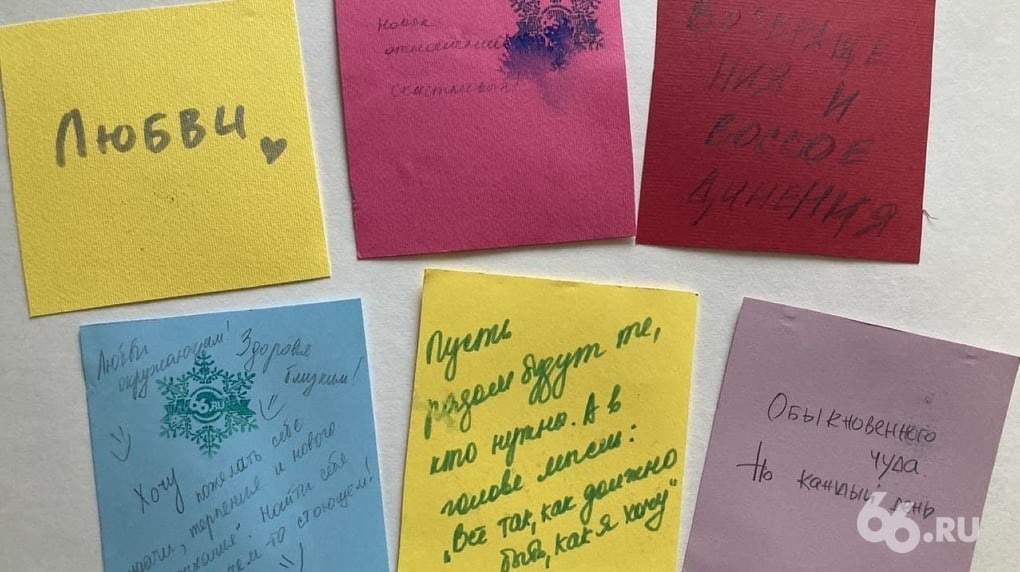 Любви
новых
отношений
счастливых!
ВОЗВРАЩЕ
НИЯ И
ВОССОЕ
ДИНЕНИЯ
Любви
окружающим!
Здоровья
близким!
66.RU
Хочу
пожелать себе
терпенья и нового
найти себя
чем то стоющем!
Пусть
рядом будут те,
кто нужно. А в
голове мысли:
„Всё так, как должно
быть, как я хочу"
Обыкновенного
чуда.
Но каждый день
66.RU